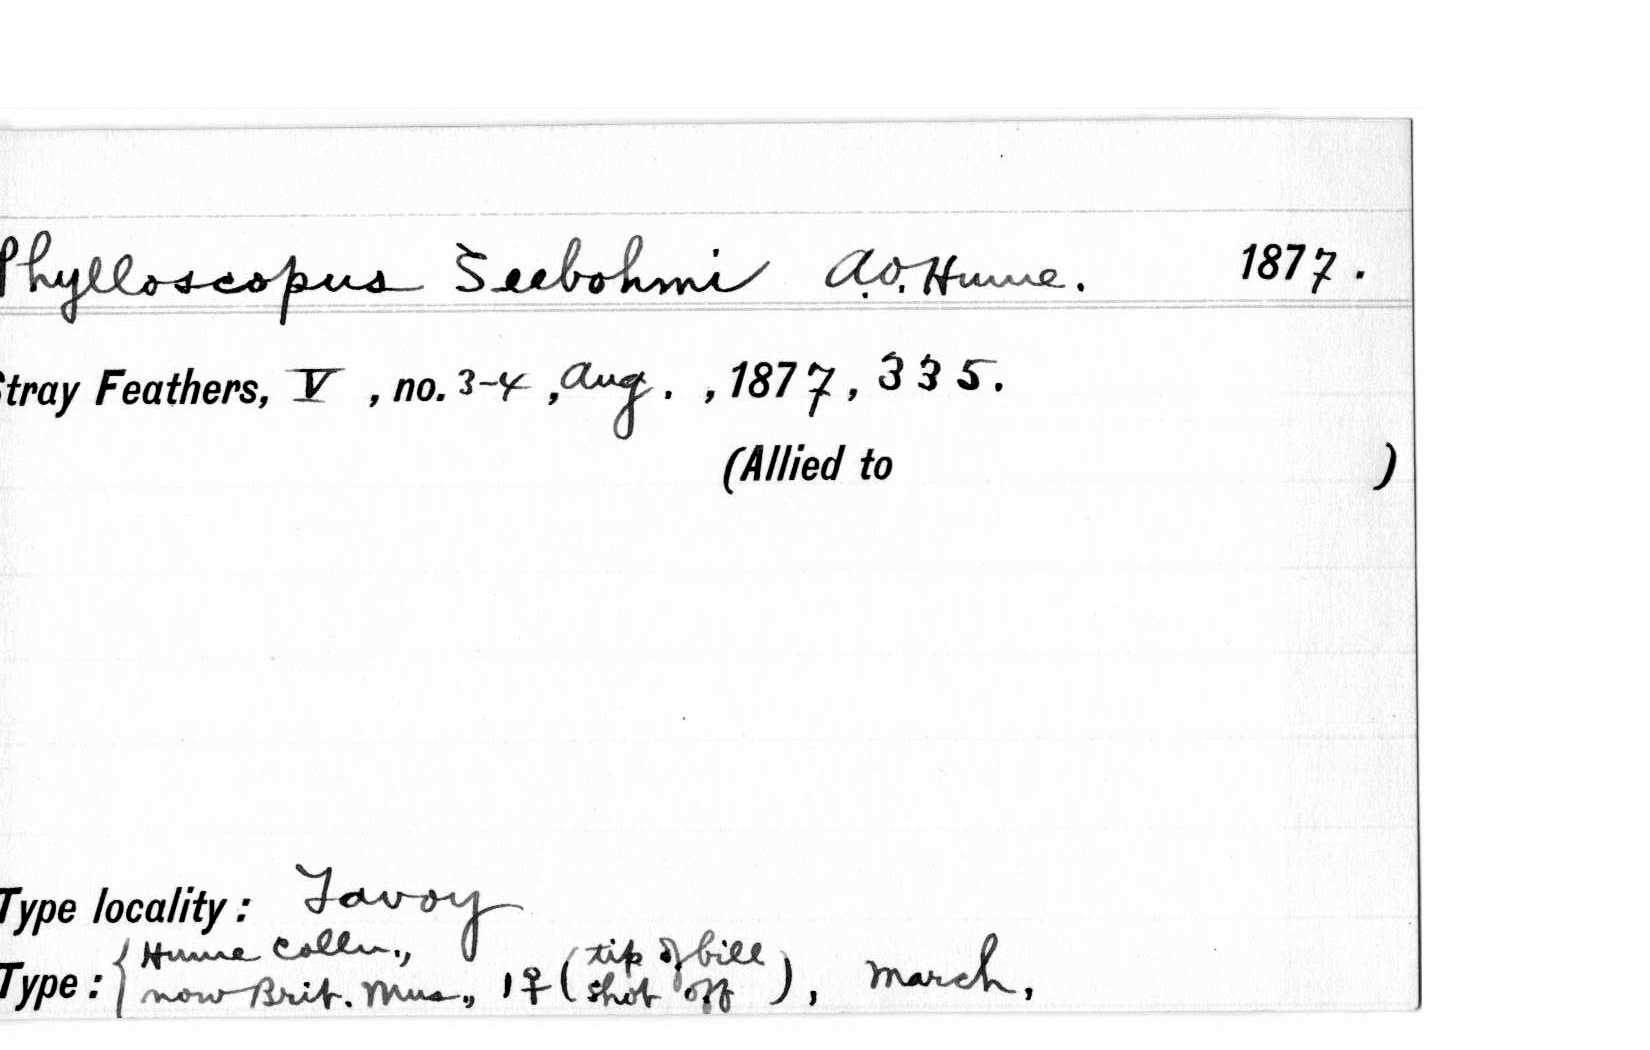 Phylloscopus Seebohmi A.O. Hume. 1877.
Stray Feathers, V, no. 3-4, Aug., 1877, 335.
(Allied to )
Type locality: Tavoy
Type: { Hume Colln.,
now Brit. Mus., 1♀ (tip of bill
shot off), March,